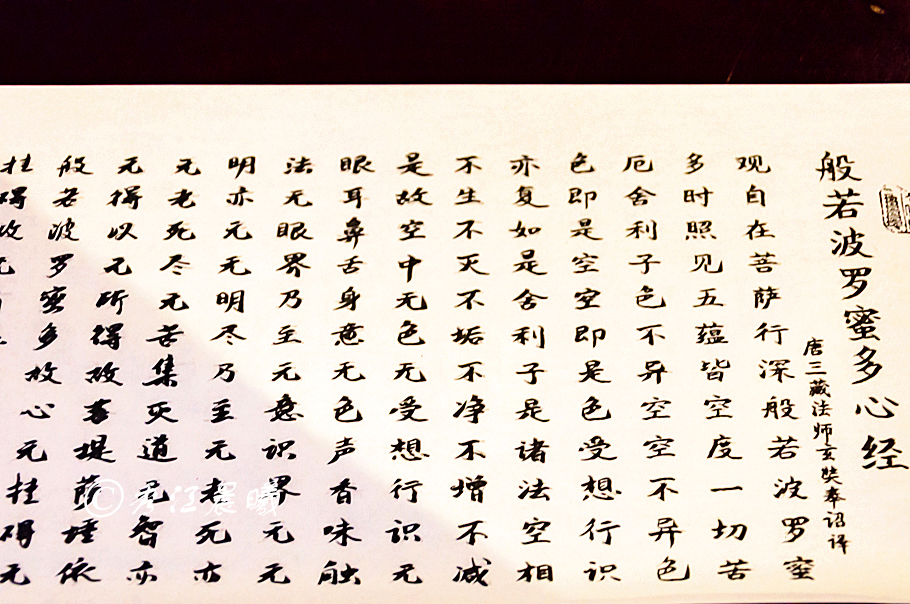 般若波罗蜜多心经
唐三藏法师玄奘奉诏译
观自在菩萨行深般若波罗蜜
多时照见五蕴皆空度一切苦
厄舍利子色不异空空不异色
色即是空空即是色受想行识
亦复如是舍利子是诸法空相
不生不灭不垢不净不增不减
是故空中无色无受想行识无
眼耳鼻舌身意无色声香味触
法无眼界乃至无意识界无无
明亦无无明尽乃至无老死亦
无老死尽无苦集灭道无智亦
无得以无所得故菩提萨埵依
般若波罗蜜多故心无挂碍无
挂碍故无
© 秀江晨曦